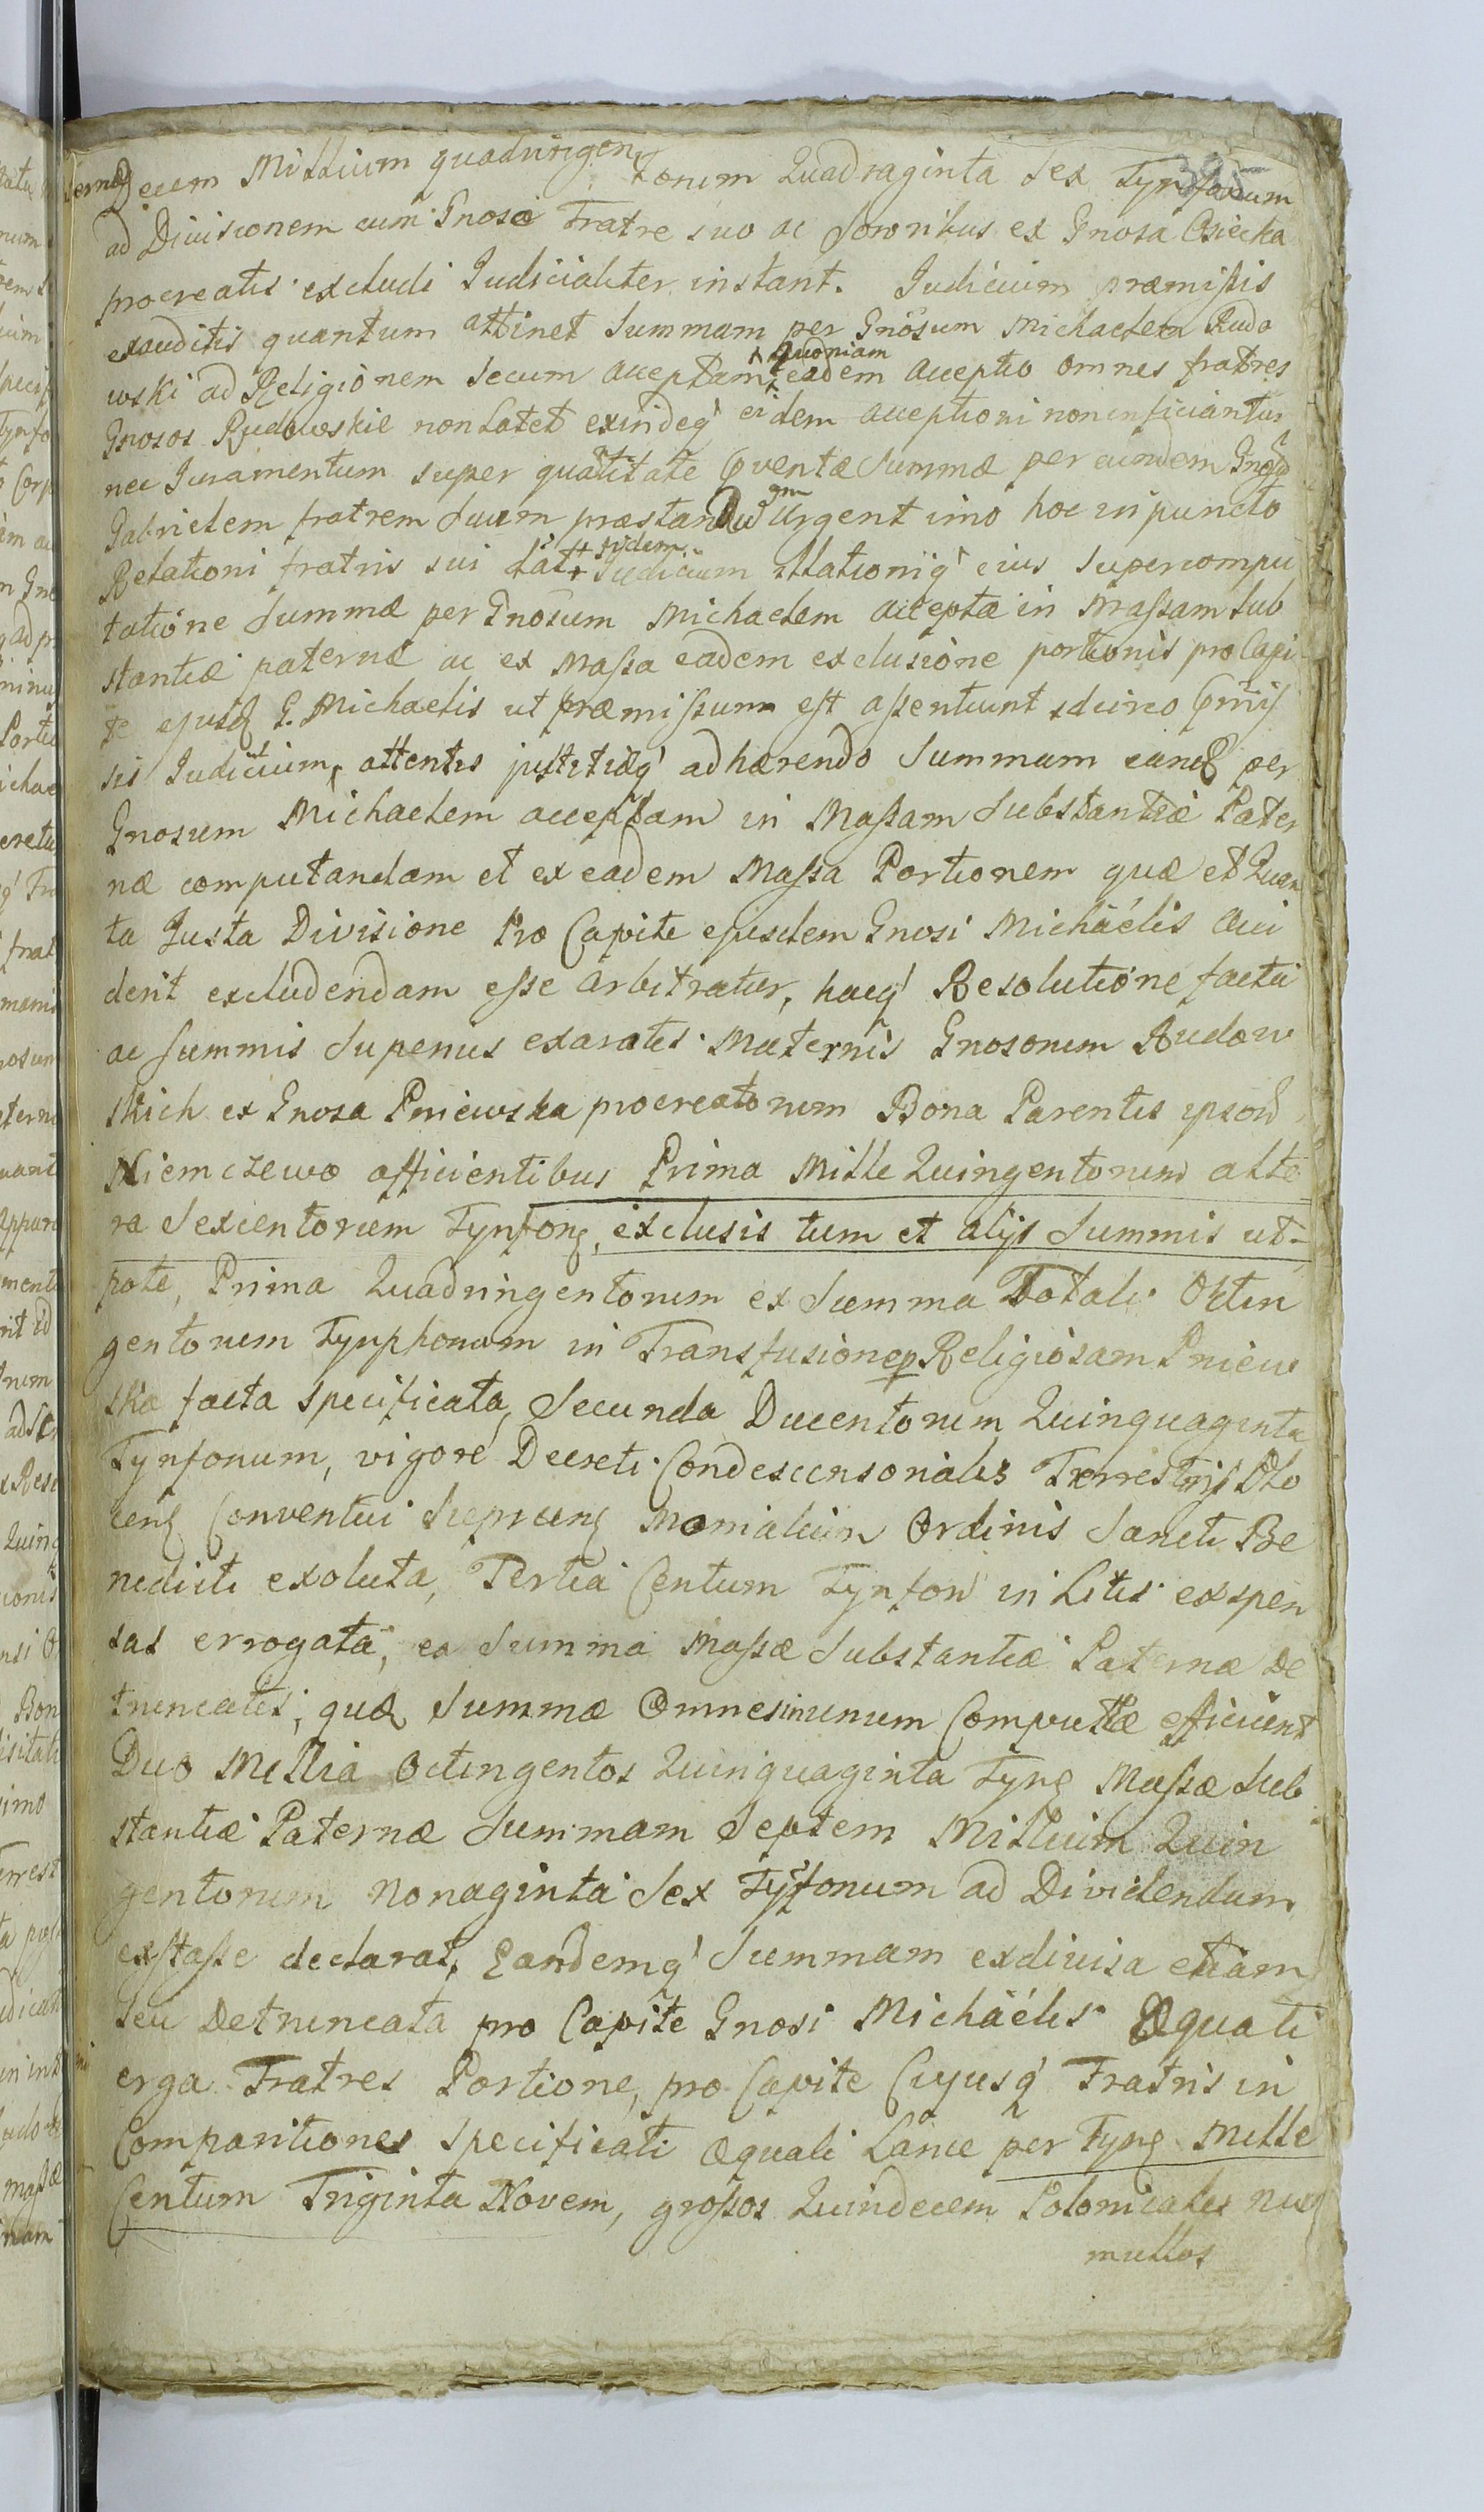 Decem Millium quadringen
torum Quadraginta Sex Tynforum
ad Divisionem cum Gnoso Fratre suo ac Sororibus ex Gnosa Osiecka
procreatis excludi Judicialiter instant. Judicium præmissis
exauditis quantum attinet Summam per Gnosum Michaelem Rudo
wski ad Religionem secum acceptam quoniam eadem acceptio omnes fratres
Gnosos Rudowskie non latet exindeq eidem acceptioni non inficiantur
nec Juramentum super quatitate Conventæ Summæ per eundem Gnosum
Gabrielem fratrem Suum præstandum Urgent imo hoc in puncto
Relationi fratris sui Judicium illationiq eius supercompu
tatione Summæ per Gnosum Michaelem acceptæ in Massam Sub
stantiæ paternæ ac ex Massa eadem exclusione portionis pro Capi
te ejusd G. Michaelis ut præmissum est assentiunt idcirco
sis Judicium, attentis justitiæq adhærendo Summam eand per
Gnosum Michaelem acceptam in Massam Substantiæ Pater
næ computandam et ex eadem Massa Portionem quæ et Quan
ta Justa Divisione Pro Capite ejusdem Gnosi Michaëlis Acci
derit excludendam esse arbitratur, hacq Resolutione facta
ac Summis Superius exaratis Maternis Gnosorum Rudow
skich ex Gnosa Pniewska procreatorum Bona Parentis ipsorum
Niemczewo afficientibus Prima Mille Quingentorum alte
ra Sexcentorum Tynfong, exclusis tum et alijs Summis ut-
pote, Prima Quadringentorum ex Summa Dotali Octin
gentorum Tynphonum in Transfusione p Religiosam Pniew
ska facta specificata, Secunda Ducentorum Quinquaginta
Tynfonum, vigore Decreti Condescensorialis Terrestris Plo
cens Conventui Sieprcens Monialium Ordinis Sancti Be
nedicti exoluta, Tertia Centum Tynfon in Litis expen
sas errogata, ex Summa Massæ Substantiæ Paternæ De
truncatis, quæ Summæ Omnes in unum Computtæ efficiunt
Duo Millia Octingentos Quinquaginta Tyng Massæ Sub
stantiæ Paternæ Summam Septem Millium Quin
gentorum Nonaginta Sex Tynfonum ad Dividendum
exstasse declarat, Eandemq Summam exdivisa etiam
seu Detruncata pro Capite Gnosi Michaëlis Æquali
erga Fratres Portione, pro Capite Cujusq Fratris in
Comparitiones specificati æquali Lance per Tyng Mille
Centum Triginta Novem, grossos Quindecem Polonicales nu
mullos